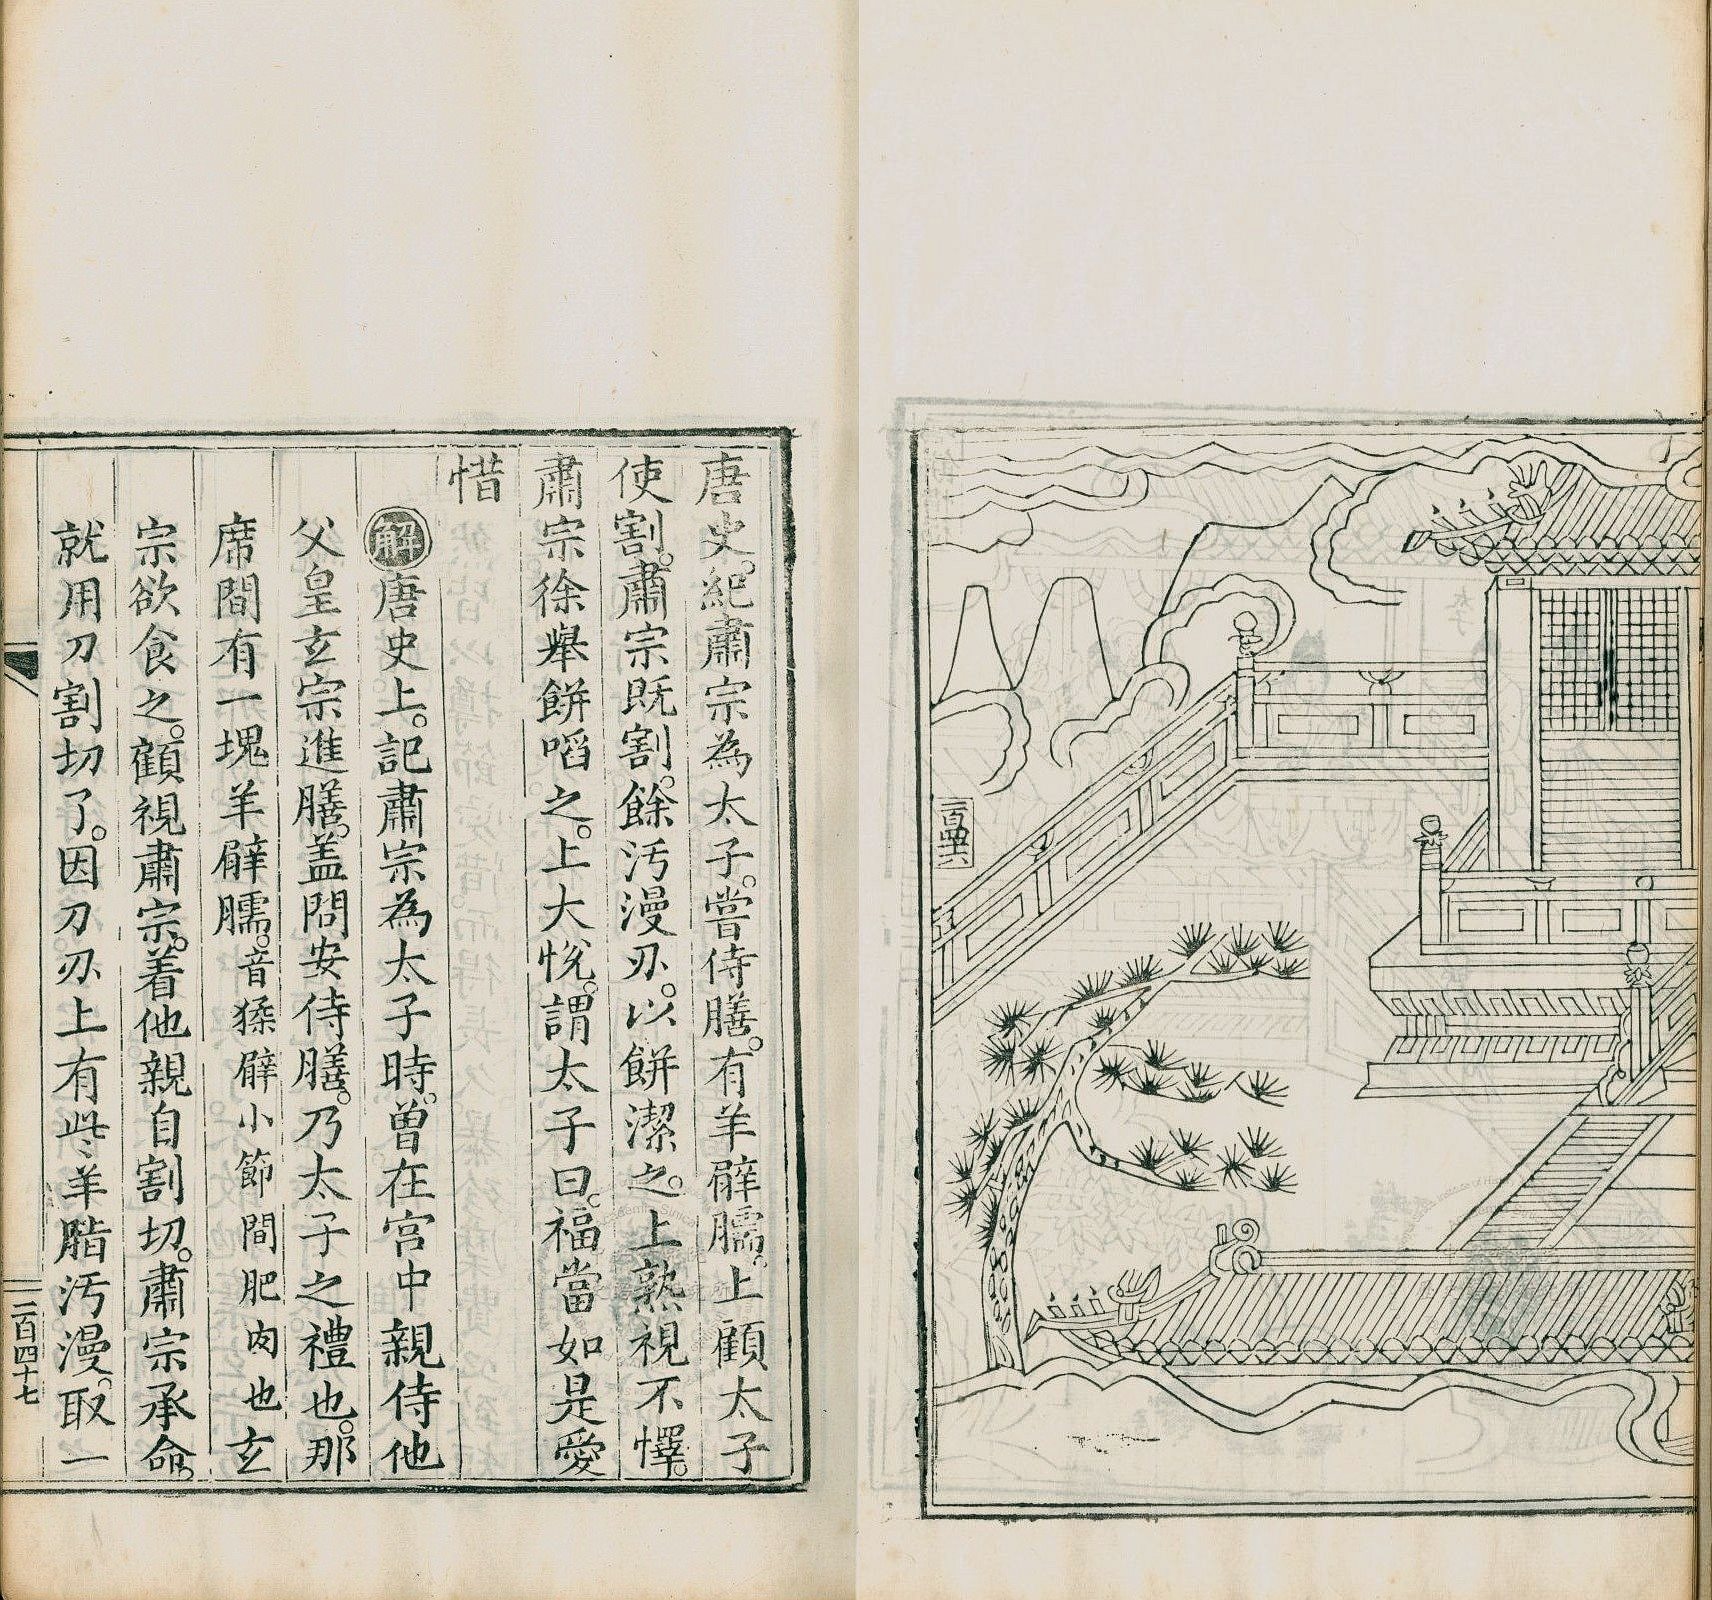 二百四十六
唐史。紀肅宗為太子。嘗侍膳。有羊臂臑。上顧太子
使割。肅宗既割。餘汚漫刃。以餅潔之。上熟視不懌。
肅宗徐舉餅啗之。上大悅。謂太子曰。福當如是愛
惜
解唐史上。記肅宗為太子時。曾在宮中親侍他
父皇玄宗進膳。盖問安侍膳。乃太子之禮也。那
席間有一塊羊臂臑。音猱臂小節間肥肉也玄
宗欲食之。顧視肅宗。着他親自割切。肅宗承命。
就用刀割切了。因刀刃上有些羊脂汚漫。取一
二百四十七